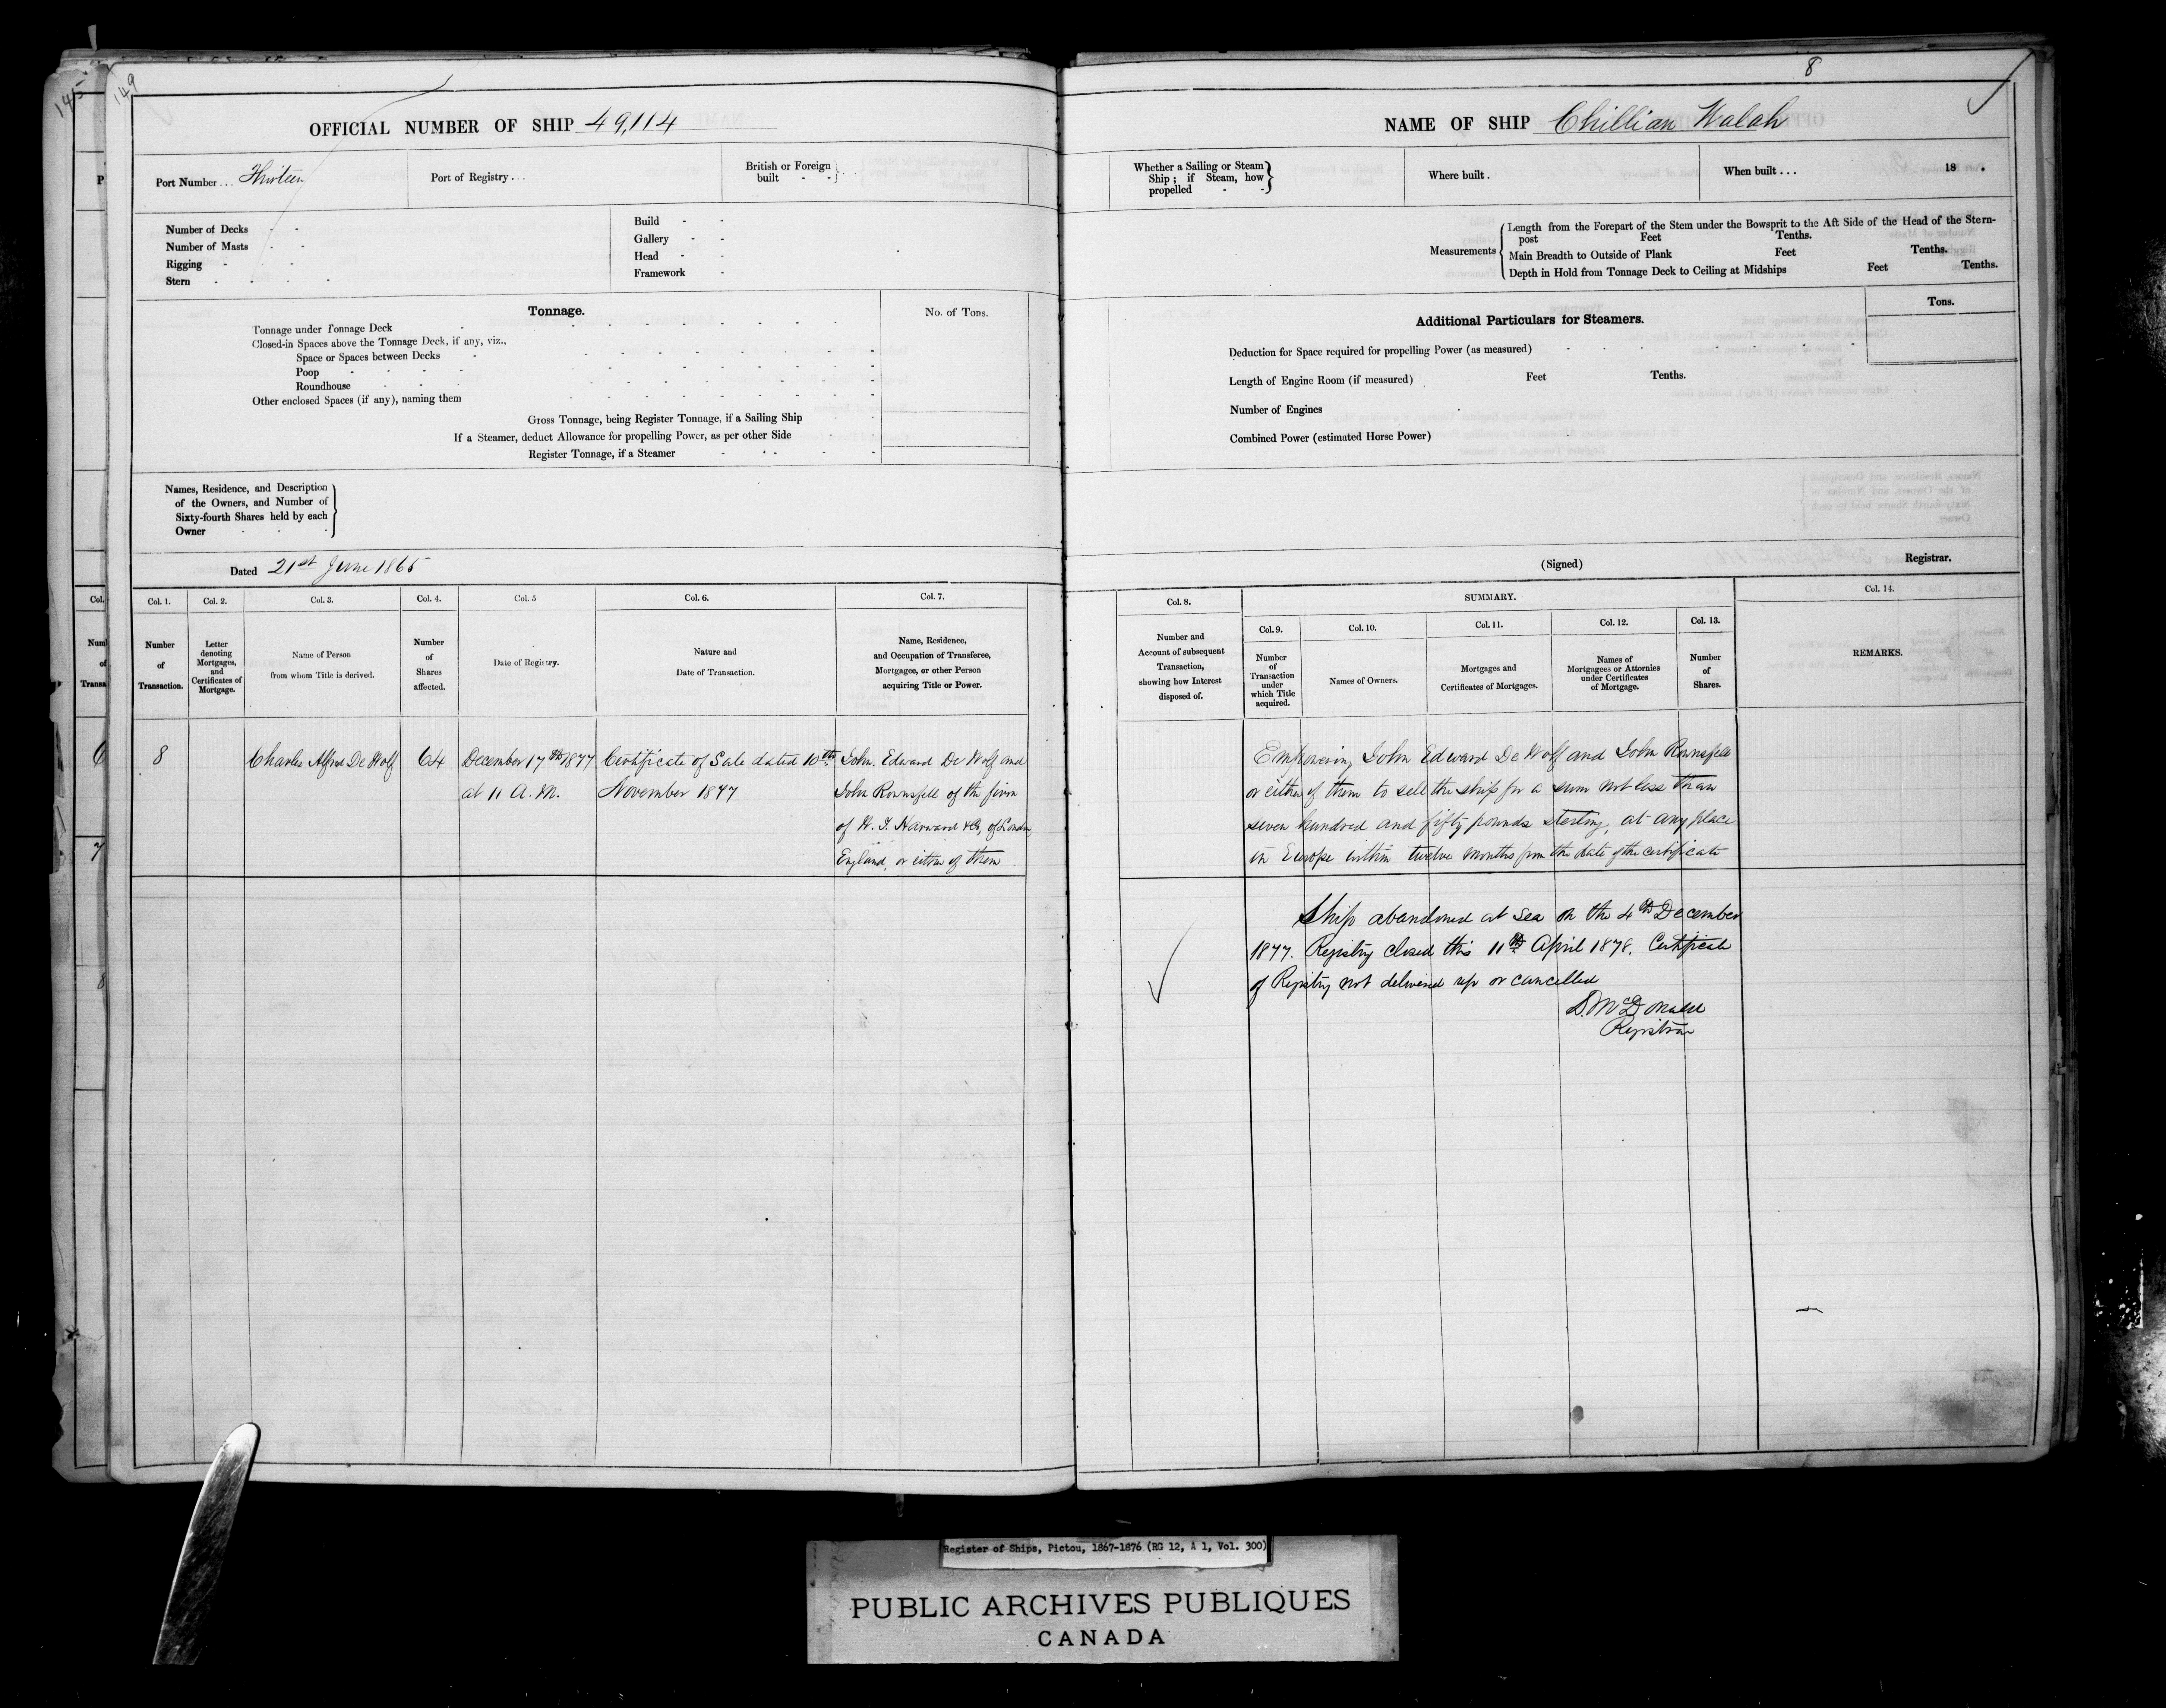 145
149
OFFICIAL NUMBER OF SHIP 49,114
Port Number . . . Thirteen
Port of Registry . . .
British or Foreign built - -
Number of Decks - -
Number of Masts - -
Rigging - - -
Stern - - - -
Build - -
Gallery - -
Head - -
Framework -
Tonnage.
No. of Tons.
Tonnage under Tonnage Deck
Closed-in Spaces above the Tonnage Deck, if any, viz.,
Space or Spaces between Decks
Poop
Roundhouse
Other enclosed Spaces (if any), naming them
Gross Tonnage, being Register Tonnage, if a Sailing Ship
If a Steamer, deduct Allowance for propelling Power, as per other Side
Register Tonnage, if a Steamer
Names, Residence, and Description
of the Owners, and Number of
Sixty-fourth Shares held by each
Owner - - -
Dated 21st June 1865
Col. 1.
Number of Transaction.
Col. 2.
Letter denoting Mortgages, and Certificates of Mortgage.
Col. 3.
Name of Person from whom Title is derived.
Col. 4.
Number of Shares affected.
Col. 5
Date of Registry.
Col. 6.
Nature and Date of Transaction.
Col. 7.
Name, Residence, and Occupation of Transferee, Mortgagee, or other Person acquiring Title or Power.
8
Charles Alfred De Wolf
64
December 17th 1877
at 11 A.M.
Certificate of Sale dated 10th
November 1877
John Edward De Wolf and
John Rownsfell of the firm
of H. T. Harward & Co, of London
England, or either of them
8
NAME OF SHIP Chillian Walah
Whether a Sailing or Steam
Ship; if Steam, how
propelled - -
Where built .
When built . . . 18 .
Measurements
Length from the Forepart of the Stem under the Bowsprit to the Aft Side of the Head of the Stern-
post Feet Tenths.
Main Breadth to Outside of Plank Feet Tenths.
Depth in Hold from Tonnage Deck to Ceiling at Midships Feet Tenths.
Additional Particulars for Steamers.
Tons.
Deduction for Space required for propelling Power (as measured)
Length of Engine Room (if measured) Feet Tenths.
Number of Engines
Combined Power (estimated Horse Power)
(Signed) Registrar.
Col. 8.
Number and Account of subsequent Transaction, showing how Interest disposed of.
SUMMARY.
Col. 9.
Number of Transaction under which Title acquired.
Col. 10.
Names of Owners.
Col. 11.
Mortgages and Certificates of Mortgages.
Col. 12.
Names of Mortgagees or Attornies under Certificates of Mortgage.
Col. 13.
Number of Shares.
Col. 14.
REMARKS.
Empowering John Edward De Wolf and John Rownsfell
or either of them to sell the ship for a sum not less than
seven hundred and fifty pounds sterling, at any place
in Europe within twelve months from the date of the certificate
Ship abandoned at sea on the 4th December
1877. Registry closed this 11th April 1878. Certificate
of Registry not delivered up or cancelled
D. McDonald
Registrar
Register of Ships, Pictou, 1867-1876 (RG 12, A 1, Vol. 300)
PUBLIC ARCHIVES PUBLIQUES
CANADA